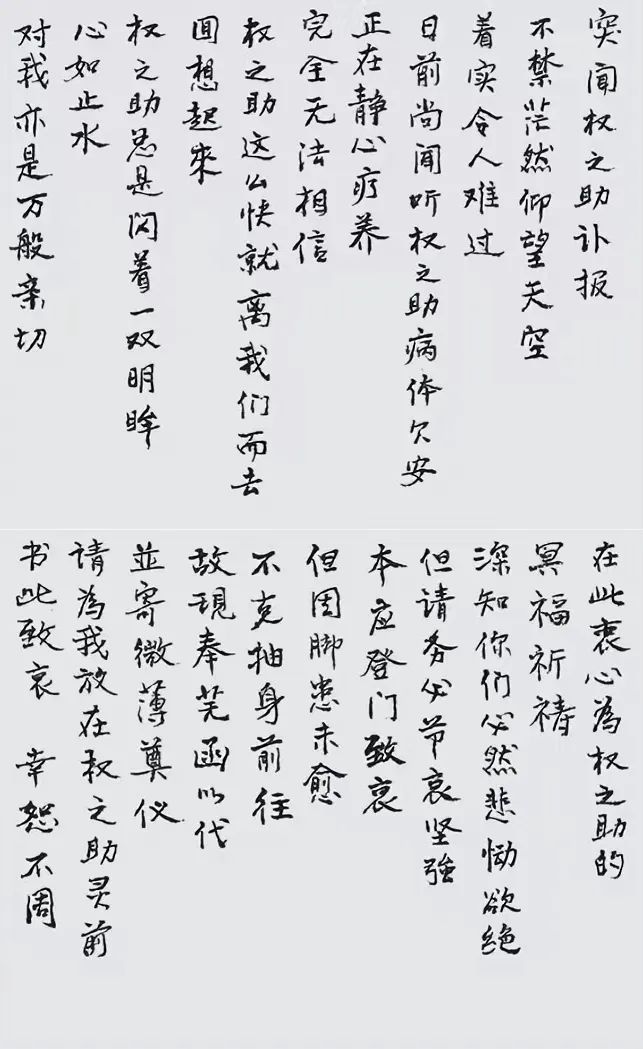 突闻权之助讣报
不禁茫然仰望天空
着实令人难过
日前尚闻听权之助病体欠安
正在静心疗养
完全无法相信
权之助这么快就离我们而去
回想起來
权之助总是闪着一双明眸
心如止水
对我亦是万般亲切
在此衷心為权之助的
冥福祈祷
深知你们必然悲恸欲绝
但请务必节哀坚強
本应登门致哀
但因脚患未愈
不克抽身前往
故现奉芜函以代
並寄微薄奠仪
请為我放在权之助灵前
书此致哀 幸恕不周